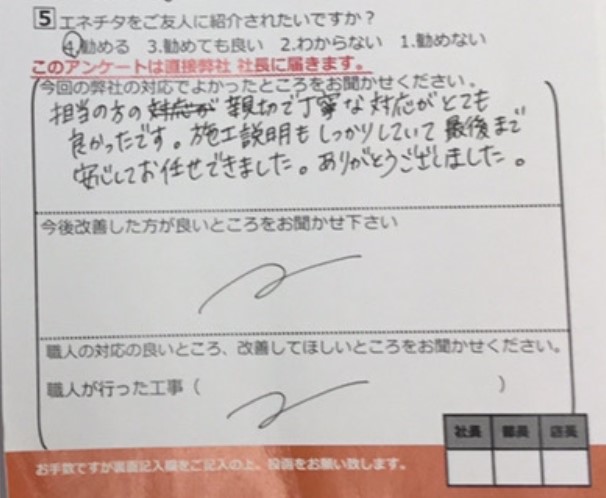 5 エネチタをご友人に紹介されたいですか？
4.勧める 3.勧めても良い 2.わからない 1.勧めない
このアンケートは直接弊社 社長に届きます。
今回の弊社の対応でよかったところをお聞かせください。
担当の方の対応が親切で丁寧な対応がとても
良かったです。施工説明もしっかりしていて最後まで
安心してお任せできました。ありがとうございました。
今後改善した方が良いところをお聞かせ下さい
職人の対応の良いところ、改善してほしいところをお聞かせください。
職人が行った工事（ ）
社長 部長 店長
お手数ですが裏面記入欄をご記入の上、投函をお願い致します。